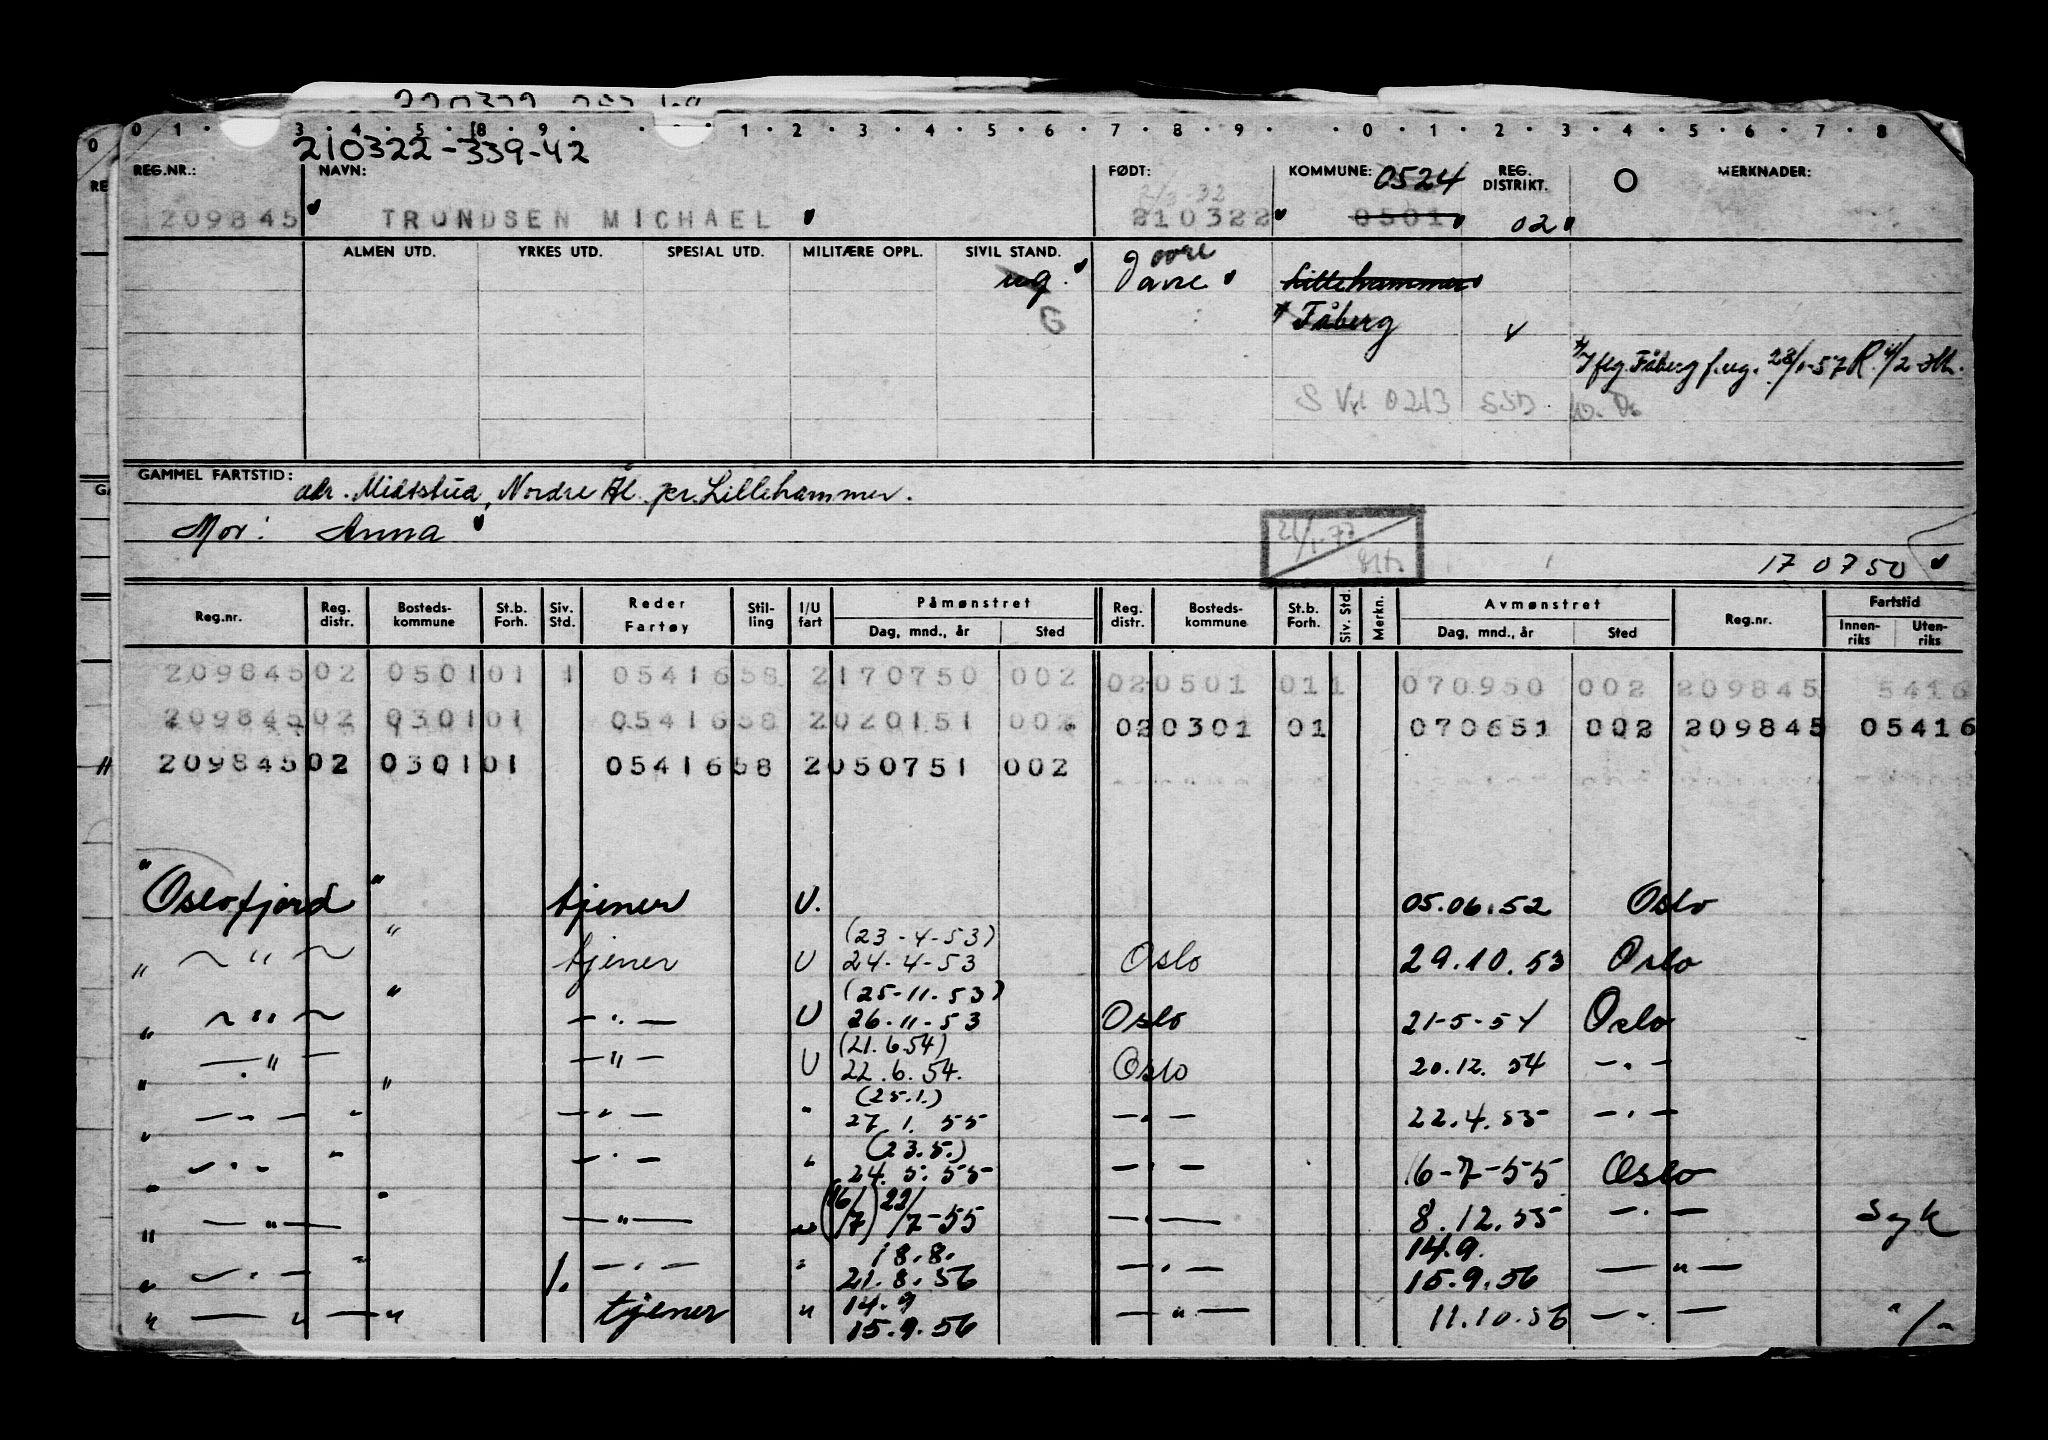 0 1 3 4 5 8 9 1 2 3 4 5 6 7 8 9 0 1 2 3 4 5 6 7 8
210322-339-42
REG.NR.: NAVN: FØDT: KOMMUNE: 0524 REG. DISTRIKT. O MERKNADER:
209845 TRONDSEN MICHAEL 210322 0501 02
ALMEN UTD. YRKES UTD. SPESIAL UTD. MILITÆRE OPPL. SIVIL STAND.
ug. Lillehammer
G Fåberg v
S 0213 SSD
GAMMEL FARTSTID: adr. Midtstua, Nordre Ål pr. Lillehammer.
Mor: Anna
21/1-77
17 07 50
Reg.nr. Reg. distr. Bosteds-kommune St.b. Forh. Siv. Std. Reder Fartøy Stil-ling I/U fart Påmønstret Dag, mnd., år Sted Reg. distr. Bosteds-kommune St.b. Forh. Siv. Std. Merkn. Avmønstret Dag, mnd., år Sted Reg.nr. Fartstid Innen-riks Uten-riks
209845 02 0501 01 1 0541658 2 170750 002 02 0501 01 1 070950 002 209845 5416
209845 02 0301 01 0541658 2 020151 002 02 0301 01 070651 002 209845 05416
" 209845 02 0301 01 0541658 2 050751 002
"Oslofjord" tjener U. 05.06.52 Oslo
(23-4-53)
" ~ " ~ " tjener U 24-4-53 Oslo 29.10.53 Oslo
(25-11-53)
" ~ " ~ " — " — U 26-11-53 Oslo 21-5-54 Oslo
(21.6.54)
— " — — " — U 22.6.54. Oslo 20.12.54 — " —
(25.1.)
" — " — " — " — " 27.1.55 — " — 22.4.55 — " —
(23.5.)
" — " — " — " — " 24.5.55 — " — 6-7-55 Oslo
" — " — " — " — " (16/7) 22/7-55 — " — 8.12.55 — " — Syk
18.8. 14.9.
" — " — " — " — " 21.8.56 — " — 15.9.56 — " —
14.9
" — " — " tjener " 15.9.56 — " — 11.10.56 — " —